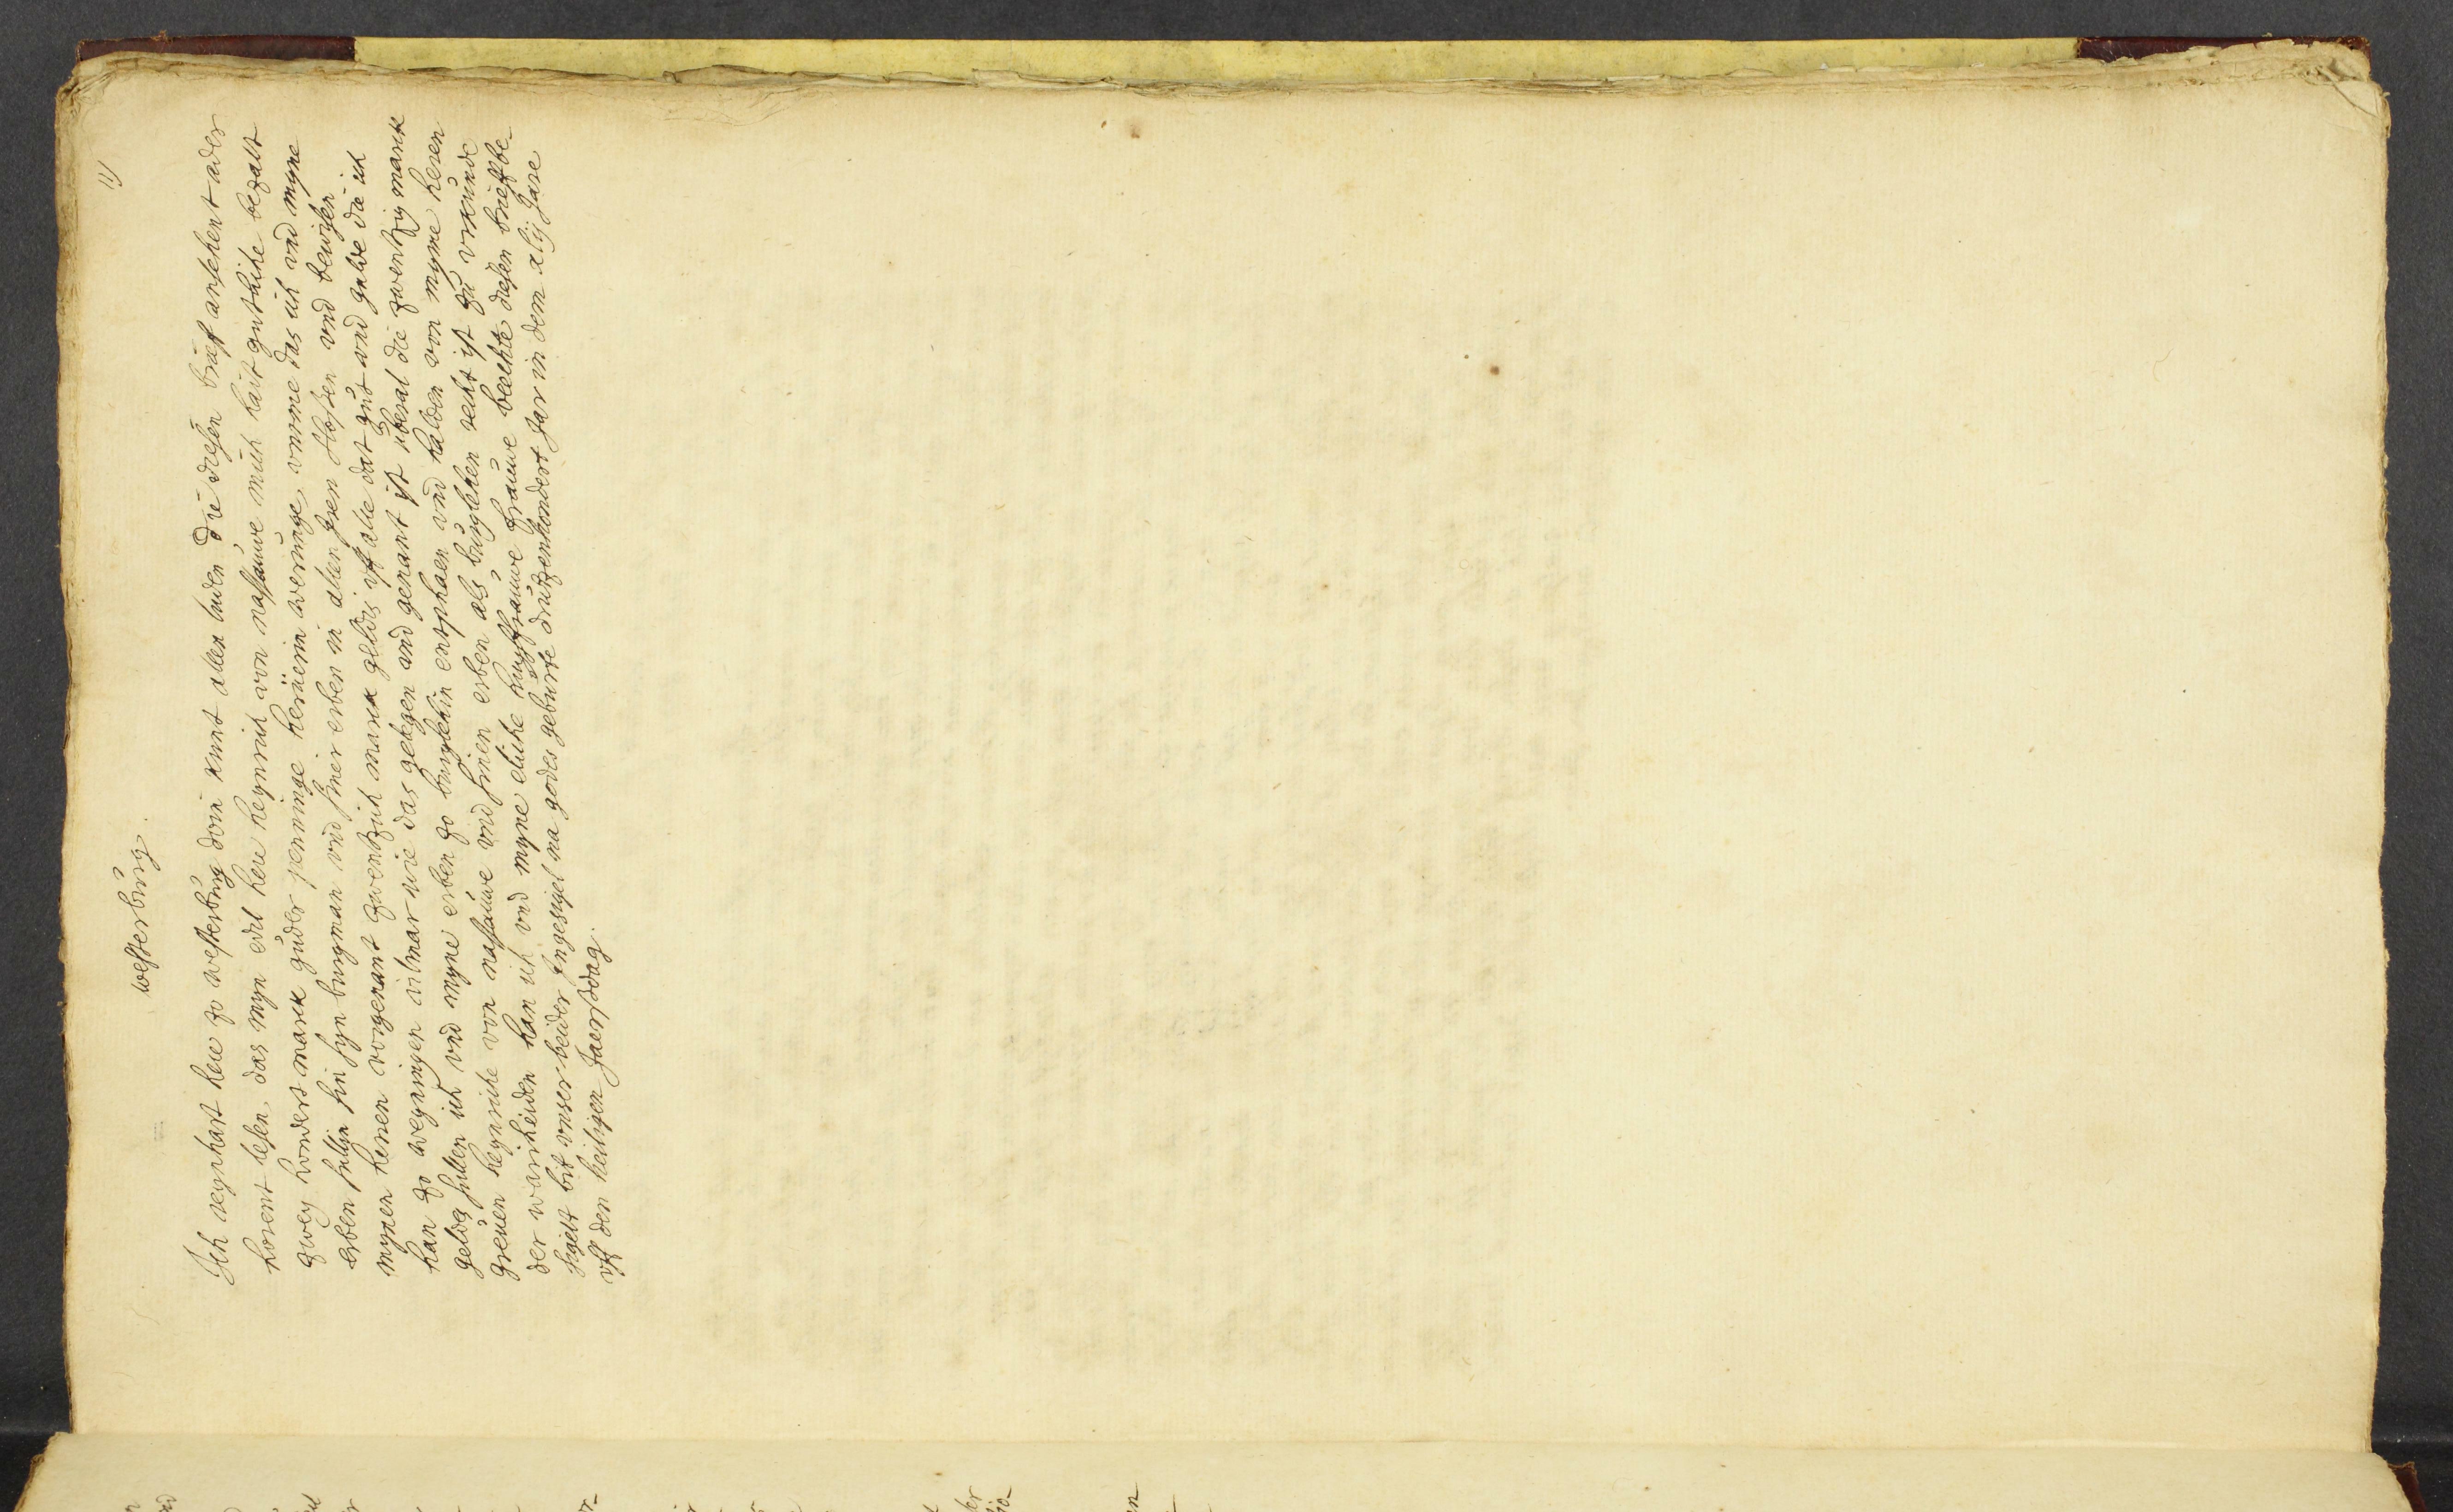 11
westerbůrg.
Ich reynhart here zo westerbůrg doin kunt allen luden die diesen brieff ansehent ader
horent lesen, das myn edil here heynrich von nassauwe mich hait gutliche bezalt
zwey hondert marck guder penninge heruerin werunge vmme das ich vnd myne
erben sullin sin syn burgman vnd siner erben in allen yren slossen vnd bewisen
mynen herren vorgenant zwentzich marck geldis vff alle dat gut vnd gulde die ich
han zo weyningen vilmar wie das gelegen vnd genant ist uberal die zwentzig marck
geldes sullen ich vnd myne erben zo burglehin entphaen vnd halden von myme heren
greuen heynriche von nassauwe vnd sinen erben als burglehen recht ist zu vrkunde
der warheiden han ich vnd myne eliche huysfrauwe frauwe diesen brieff be-
segelt bit vnser beider Ingesigel na godes geburte druzenhondert Jar in dem xlij Jare
vff den heiligen Jaersdag.